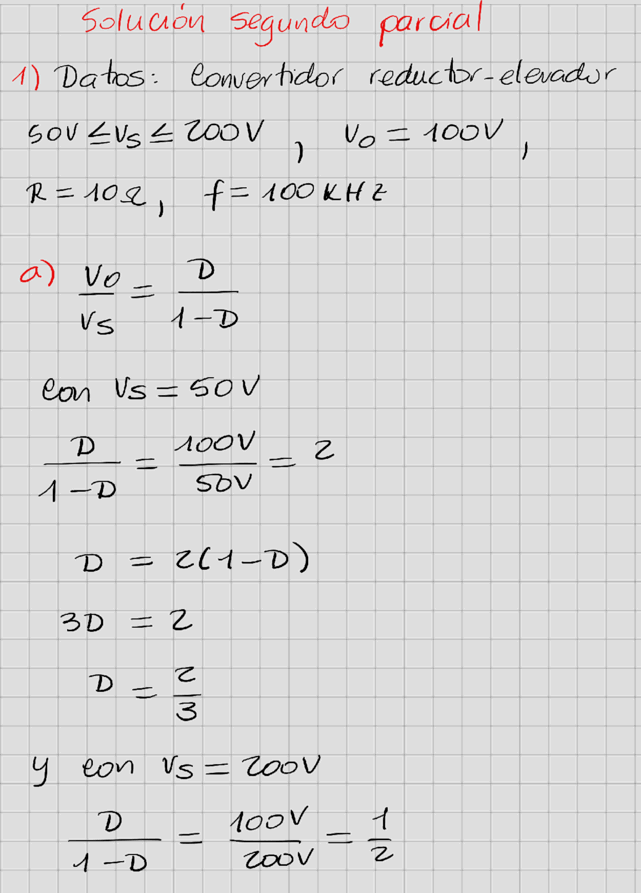 Solución segundo parcial
1) Datos: Convertidor reductor-elevador
50V ≤ Vs ≤ 200V , Vo = 100V ,
R = 10Ω, f = 100 KHZ
a) Vo/Vs = D/(1-D)
con Vs = 50V
D/(1-D) = 100V/50V = 2
D = 2(1-D)
3D = 2
D = 2/3
y con Vs = 200V
D/(1-D) = 100V/200V = 1/2